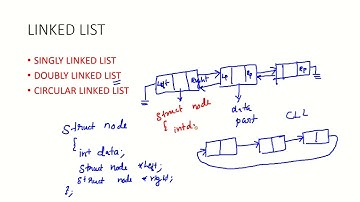 LINKED LIST
• SINGLY LINKED LIST
• DOUBLY LINKED LIST
• CIRCULAR LINKED LIST
Left Right Lp Rp Rp
struct node
{ int d;
data
part
CLL
struct node
{
int data;
struct node *left;
struct node *right;
};